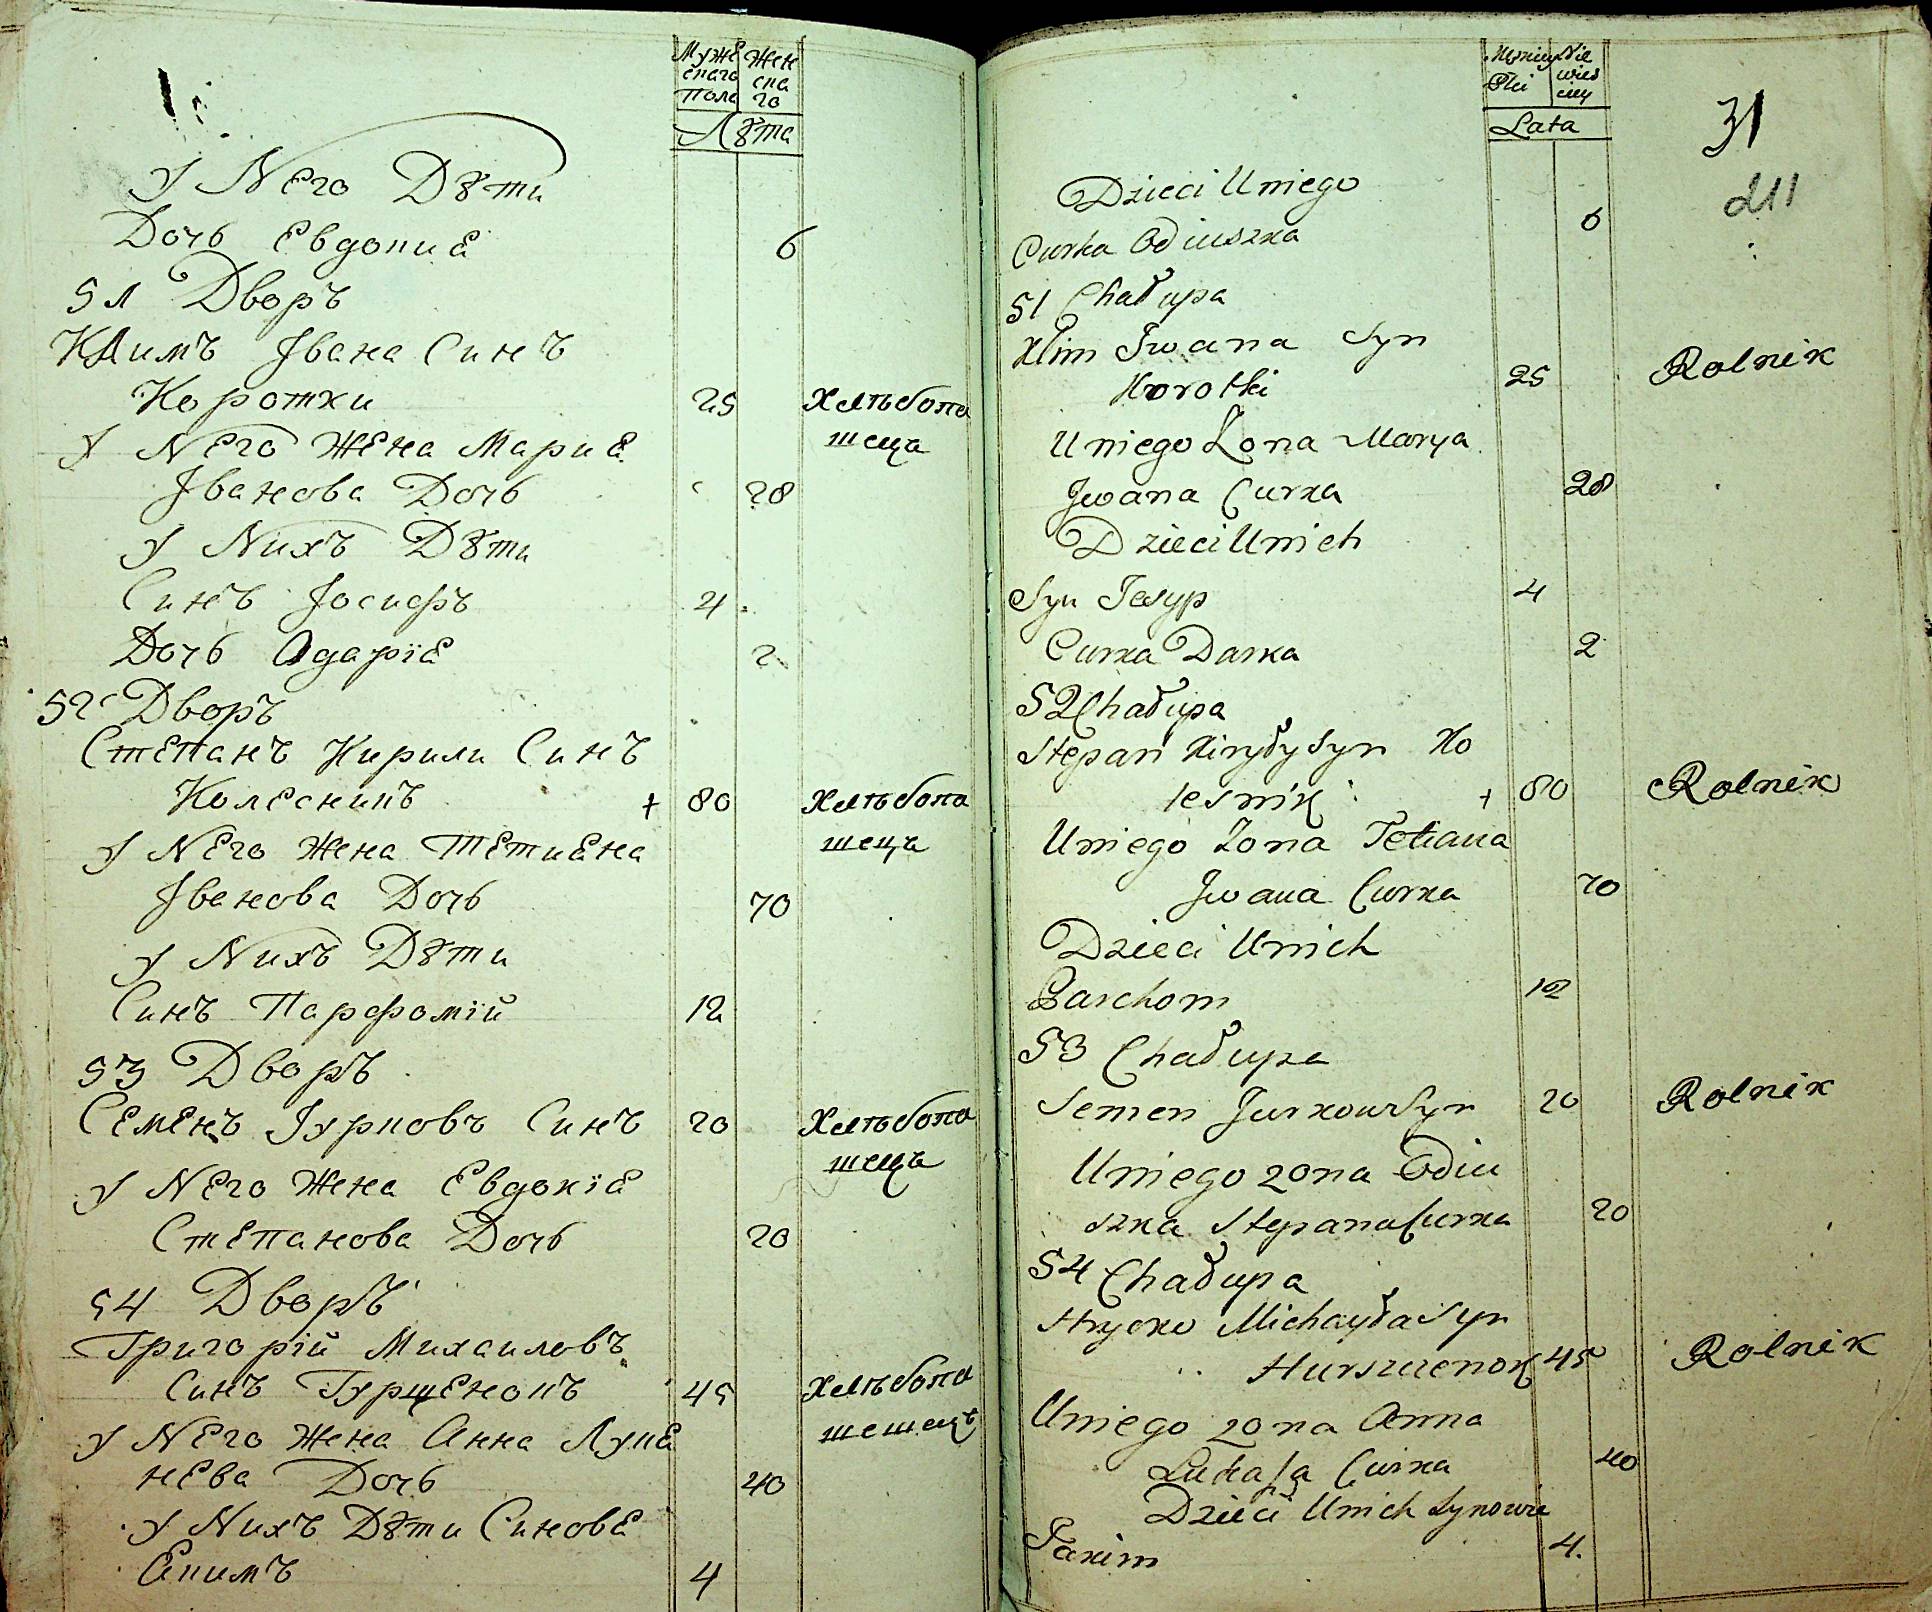 Муже Жен
скаго ска
Пола го
Лѣта
У Него Дѣти
Дочь Евдокиѣ 6
51 Дворъ
Климъ Ивана Синъ
Коротки 25 Хлѣбопа
У Него Жена Мариѣ шеца
Іванова Дочь 28
У Нихъ Дѣти
Синъ Іосифъ 4
Дочь Одаріѣ 2
52 Дворъ
Степанъ Кирили Синъ
Колесникъ + 80 Хлѣбопа
У Него Жена Тетиѣна шецъ
Іванова Дочь 70
У Нихъ Дѣти
Синъ Парфомій 12
53 Дворъ
Семенъ Іурковъ Синъ 20 Хлѣбопа
У Него Жена Евдокіѣ шецъ
Степанова Дочь 20
54 Дворъ
Григорій Михаиловъ
Синъ Гурщенокъ 45 Хлѣбопа
У Него Жена Анна Луке шешецъ
нева Дочь 40
У Нихъ Дѣти Синовѣ
Екимъ 4
Męzkiey Nie
Płci wies
ciey
Lata
31
211
Dzieci U niego
Curka Odiuszka 6
51 Chałupa
Klim Jwana Syn
Korotki 25 Rolnik
U niego Zona Marya
Jwana Curka 28
Dzieci U nich
Syn Jesyp 4
Curka Darka 2
52 Chałupa
Stepan Kiryły Syn Ko
lesnik + 80 Rolnik
U niego Zona Tetiana
Jwana Curka 70
Dzieci U nich
Parchom 12
53 Chałupa
Semen Jurkow Syn 20 Rolnik
U niego zona Odiu
szka Stepana Curka 20
54 Chałupa
Hryćko Michayła Syn
Hurszczenok 45 Rolnik
U niego zona Anna
Łukasza Curka 40
Dzieci U nich Synowie
Jakim 4.